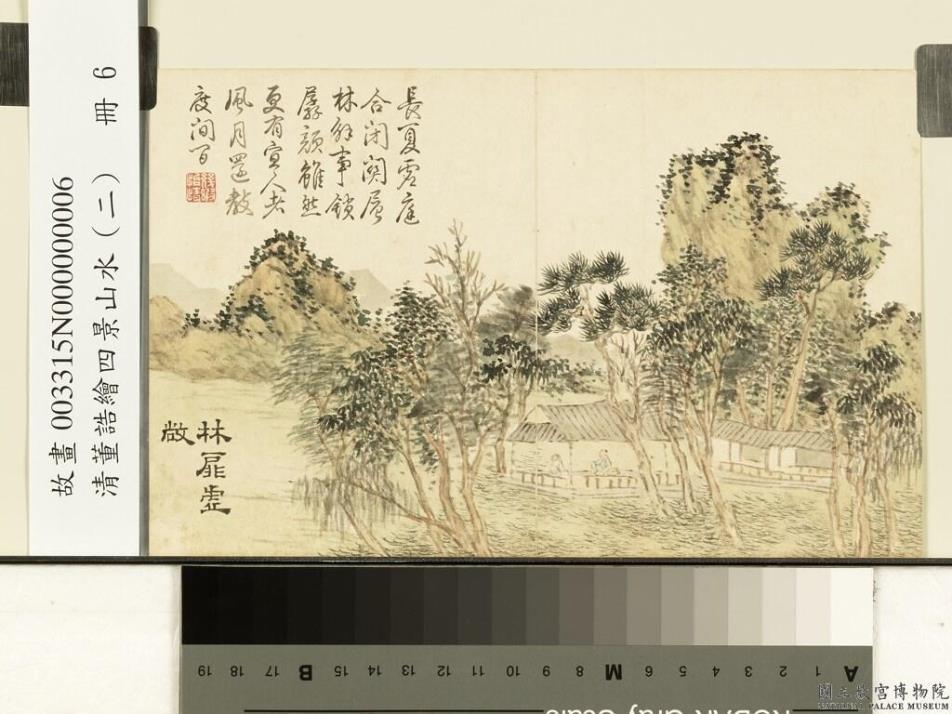 故畫 003315N000000006
清董誥繪四景山水(二) 冊 6
長夏虛庭
合閉關層
林解事鎖
孱顏雖然
更有宜人者
風月還教
度間
林扉虛
敞
A 1 2 3 4 5 6 M 8 9 10 11 12 13 14 15 B 17 18 19
KODAK Gray Scale
國立故宮博物院
NATIONAL PALACE MUSEUM